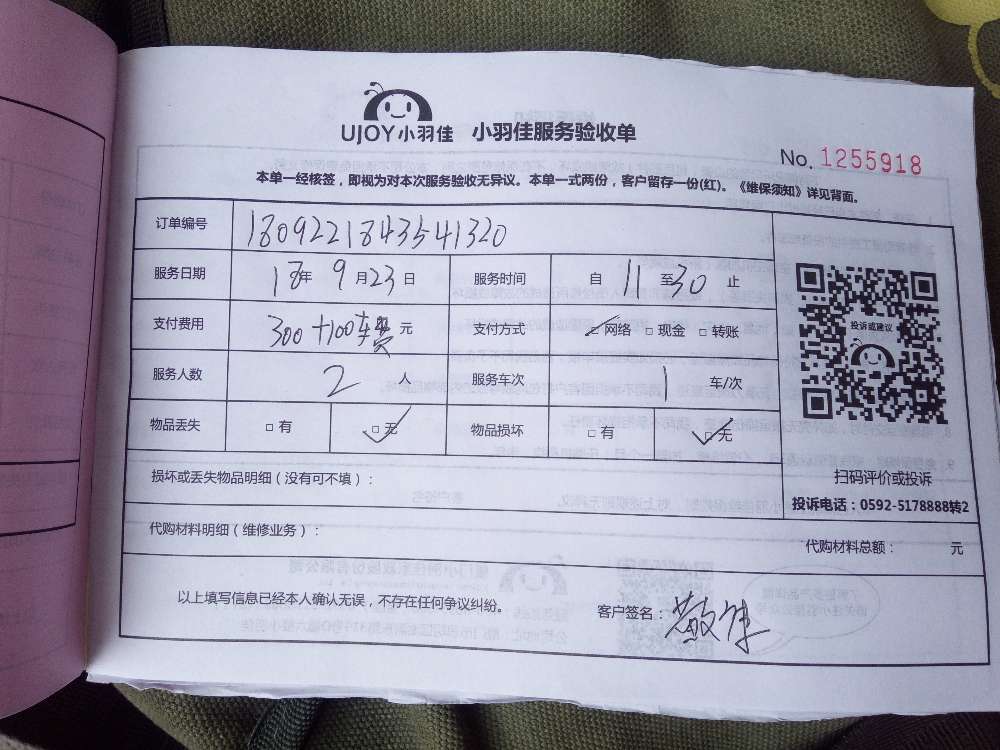 UJOY小羽佳 小羽佳服务验收单
No. 1255918
本单一经核签，即视为对本次服务验收无异议。本单一式两份，客户留存一份(红)。《维保须知》详见背面。
订单编号 1809221843541320
服务日期 18年 9月23日 服务时间 自 11 至30 止
支付费用 300+100车费 元 支付方式 □网络 □现金 □转账
投诉或建议
服务人数 2 人 服务车次 1 车/次
物品丢失 □有 □无 物品损坏 □有 □无
损坏或丢失物品明细（没有可不填）：
扫码评价或投诉
投诉电话：0592-5178888转2
代购材料明细（维修业务）：
代购材料总额： 元
以上填写信息已经本人确认无误，不存在任何争议纠纷。 客户签名：